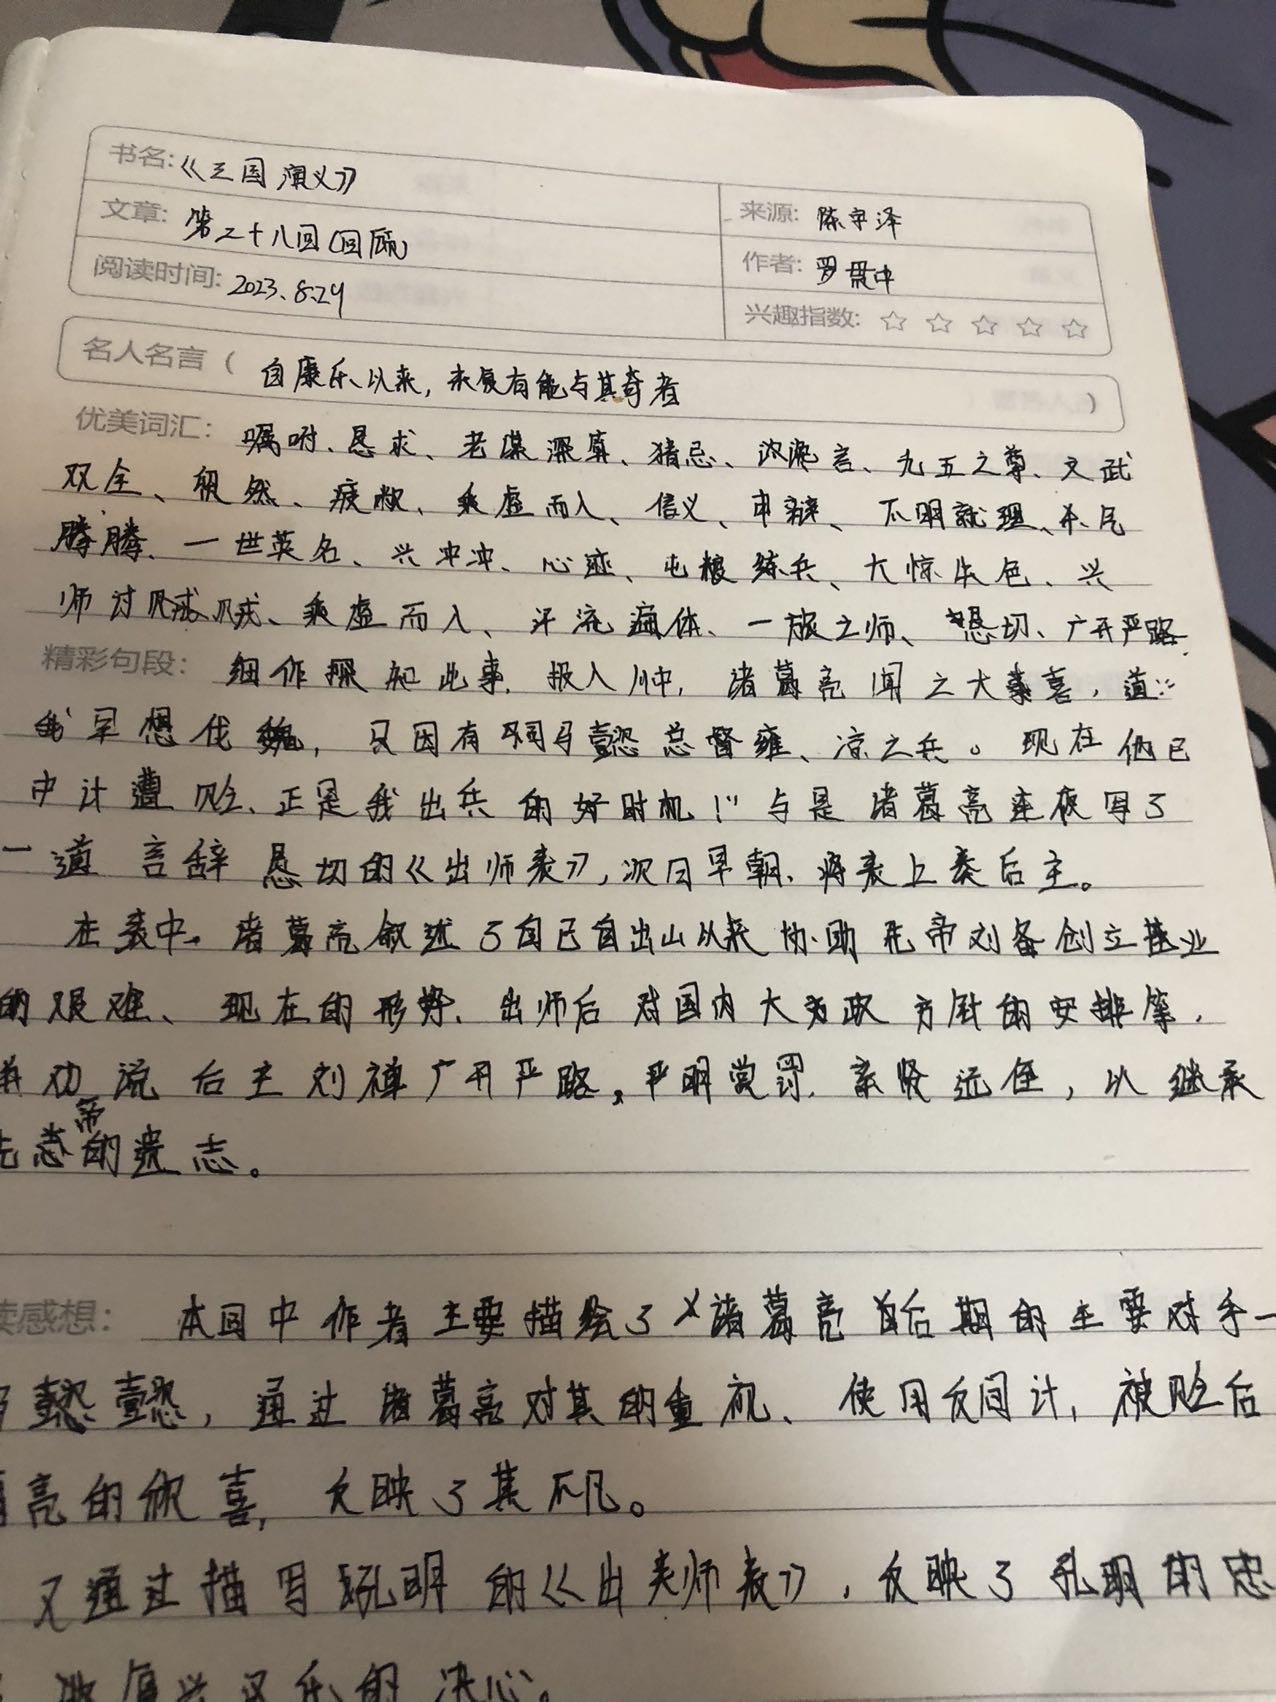 书名:《三国演义》
文章: 第二十八回(回顾)
来源: 陈宇泽
阅读时间: 2023.8.29
作者: 罗贯中
兴趣指数: ☆ ☆ ☆ ☆ ☆
名人名言( 自康乐以来,未复有能与其奇者 )
优美词汇: 嘱咐、恳求、老谋深算、猜忌、流言、九五之尊、文武
双全、毅然、疲惫、乘虚而入、信义、申辩、不明就理、杀气
腾腾、一世英名、兴冲冲、心迹、屯粮练兵、大惊失色、兴
师讨贼、乘虚而入、汗流遍体、一旅之师、恳切、广开严路
精彩句段: 细作探知此事,报入川中,诸葛亮闻之大喜,道:
我早想伐魏,只因有司马懿总督雍、凉之兵。现在他已
中计遭贬、正是我出兵的好时机!"与是诸葛亮连夜写了
一道言辞恳切的《出师表》,次日早朝、将表上奏后主。
在表中、诸葛亮叙述了自己自出山以来协助先帝刘备创立基业
的艰难、现在的形势、出师后对国内大政方针的安排等,
并劝后主刘禅广开严路,严明赏罚、亲贤远佞,以继承
先帝的遗志。
读感想: 本回中作者主要描绘了诸葛亮后期的主要对手一
懿,通过诸葛亮对其的重视、使用反间计,被贬后
亮的欣喜,反映了其不凡。
又通过描写孔明的《出师表》,反映了孔明的忠
复兴汉乐的决心。